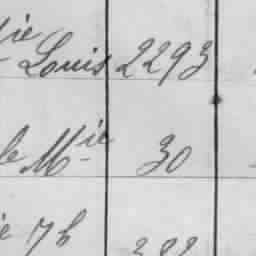 ie Louis 2293
le Mie 30
ie 7b